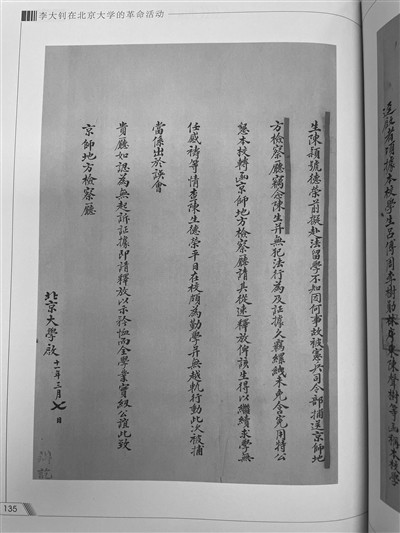 李大钊在北京大学的革命活动
逕啟者頃據本校學生呂傅周李樹勛林陳聲樹等函稱本校學
生陳穎號德榮前擬赴法留學不知因何事故被憲兵司令部捕送京師地
方檢察廳竊念陳生并無犯法行為及証據久羈縲絏未免含冤用特公
懇本校轉函京師地方檢察廳請其從速釋放俾該生得以繼續求學無
任感禱等情查陳生德榮平日在校頗為勤學并無越軌行動此次被捕
當係出於誤會
貴廳如認為無起訴証據即請釋放以示矜恤而全學業實紉公誼此致
京師地方檢察廳
北京大學啟 十一年三月七日
135